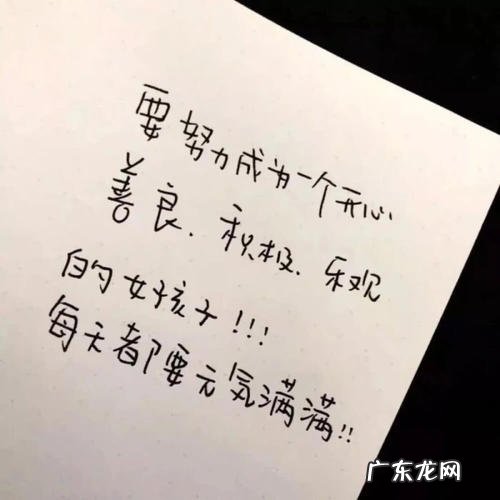 要努力成为一个开心
善良、积极、乐观
的女孩子!!!
每天都要元气满满!!
广东龙网